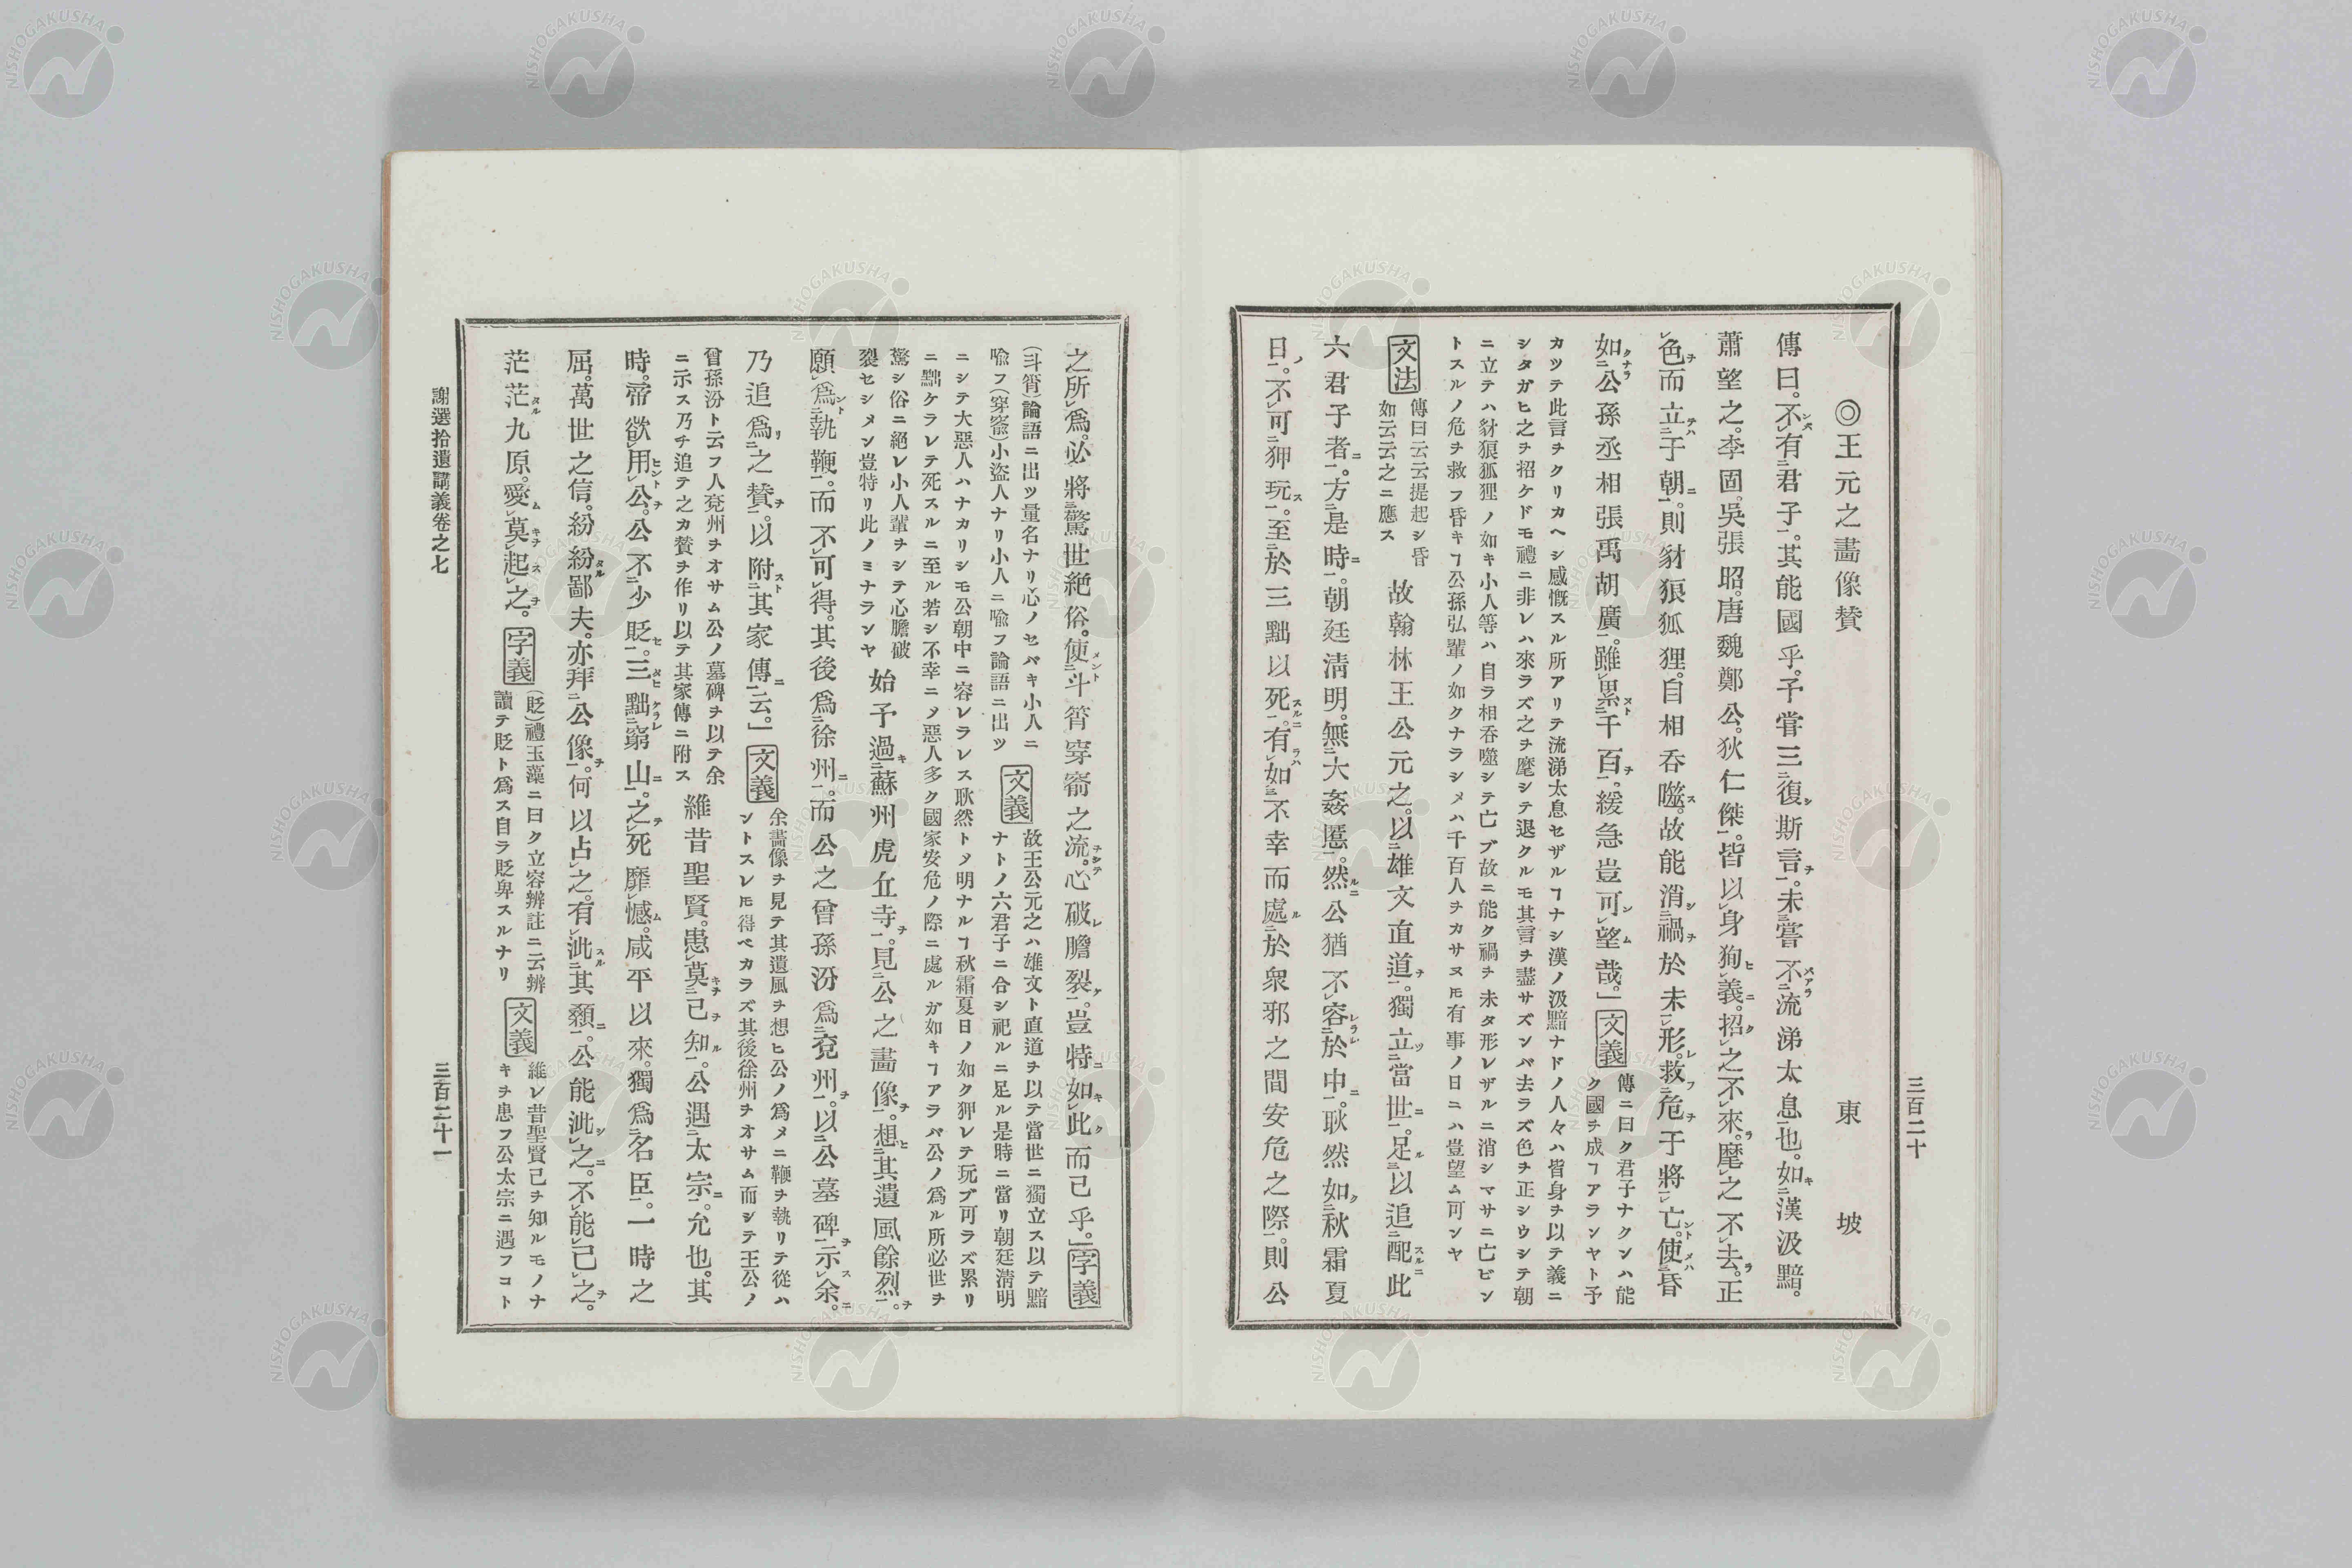 三百二十
◎王元之畵像賛　東坡
傳曰。不有君子。其能國乎。予甞三復斯言。未甞不流涕太息也。如漢汲黯。
蕭望之。李固。吳張昭。唐魏鄭公。狄仁傑。皆以身狥義。招之不來。麾之不去。正
色而立于朝。則豺狼狐狸。自相呑噬。故能消禍於未形。救危于將亡。使昏
如公孫丞相張禹胡廣。雖累千百。緩急豈可望哉。」文義
傳ニ曰ク君子ナクンハ能
ク國ヲ成ヿアランヤト予
カツテ此言ヲクリカヘシ感慨スル所アリテ流涕太息セザルヿナシ漢ノ汲黯ナドノ人々ハ皆身ヲ以テ義ニ
シタガヒ之ヲ招ケドモ禮ニ非レハ來ラズ之ヲ麾シテ退クルモ其言ヲ盡サズンバ去ラズ色ヲ正シウシテ朝
ニ立テハ豺狼狐狸ノ如キ小人等ハ自ラ相呑噬シテ亡ブ故ニ能ク禍ヲ未タ形レザルニ消シマサニ亡ビン
トスルノ危ヲ救フ昏キヿ公孫弘輩ノ如クナラシメハ千百人ヲカサヌㇳモ有事ノ日ニハ豈望ム可ンヤ
文法
傳曰云云提起シ昏
如云云之ニ應ス
故翰林王公元之。以雄文直道。獨立當世。足以追配此
六君子者。方是時。朝廷淸明。無大姦慝。然公猶不容於中。耿然如秋霜夏
日。不可狎玩。至於三黜以死。有如不幸而處於衆邪之間安危之際。則公
之所爲。必將驚世絶俗。使斗筲穿窬之流。心破膽裂。豈特如此而已乎。」字義
(斗筲)論語ニ出ツ量名ナリ心ノセバキ小人ニ
喩フ(穿窬)小盜人ナリ小人ニ喩フ論語ニ出ツ
文義
故王公元之ハ雄文ト直道ヲ以テ當世ニ獨立ス以テ黯
ナトノ六君子ニ合シ祀ルニ足ル是時ニ當リ朝廷淸明
ニシテ大惡人ハナカリシモ公朝中ニ容レラレス耿然トメ明ナルヿ秋霜夏日ノ如ク狎レテ玩ブ可ラズ累リ
ニ黜ケラレテ死スルニ至ル若シ不幸ニメ惡人多ク國家安危ノ際ニ處ルガ如キヿアラバ公ノ爲ル所必世ヲ
驚シ俗ニ絕レ小人輩ヲシテ心膽破
裂セシメン豈特リ此ノミナランヤ
始予過蘇州虎丘寺。見公之畵像。想其遺風餘烈。
願爲執鞭。而不可得。其後爲徐州。而公之曾孫汾爲兗州。以公墓碑示余。
乃追爲之賛。以附其家傳云。」文義
余畵像ヲ見テ其遺風ヲ想ヒ公ノ爲メニ鞭ヲ執リテ從ハ
ントスレㇳモ得ベカラズ其後徐州ヲオサム而シテ王公ノ
曾孫汾ト云フ人兗州ヲオサム公ノ墓碑ヲ以テ余
ニ示ス乃チ追テ之カ賛ヲ作リ以テ其家傳ニ附ス
維昔聖賢。患莫己知。公遇太宗。允也。其
時。帝欲用公。公不少貶。三黜窮山。之死靡憾。咸平以來。獨爲名臣。一時之
屈。萬世之信。紛紛鄙夫。亦拜公像。何以占之。有泚其顙。公能泚之。不能已之。
茫茫九原。愛莫起之。字義
(貶)禮玉藻ニ曰ク立容辨註ニ云辨
讀テ貶ト爲ス自ラ貶卑スルナリ
文義
維レ昔聖賢己ヲ知ルモノナ
キヲ患フ公太宗ニ遇フコト
謝選拾遺講義卷之七
三百二十一